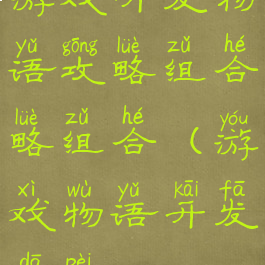 游戏开发物
yǔ gōng lüè zǔ hé
语攻略组合
lüè zǔ hé yóu
略组合(游
xì wù yǔ kāi fā
戏物语开发
dā pèi